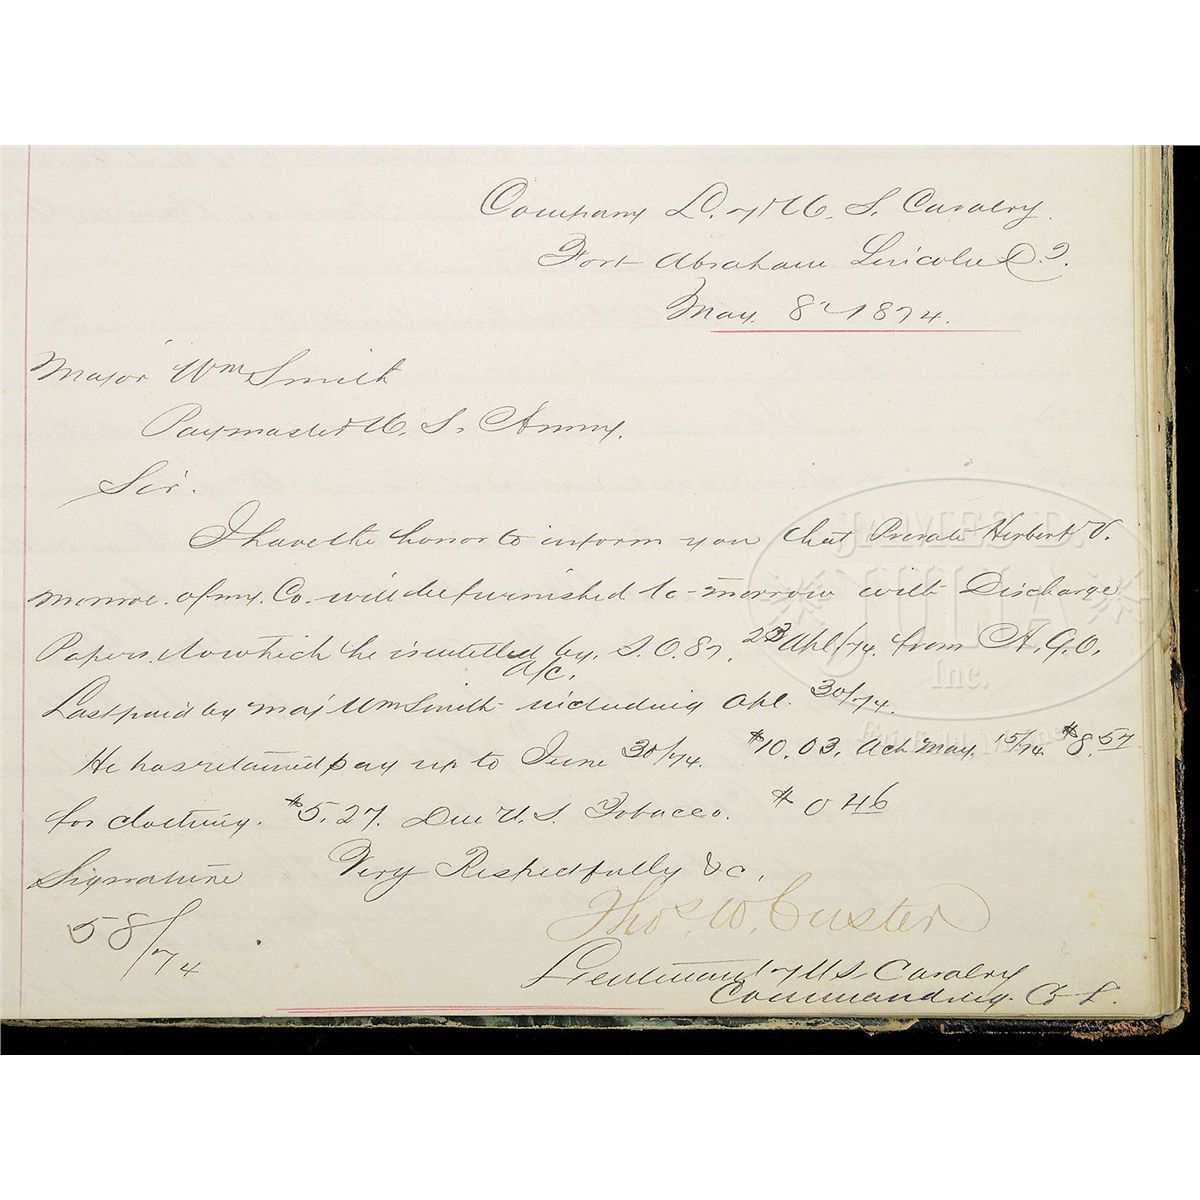 Company L. 7th U. S. Cavalry.
Fort Abraham Lincoln D. T.
May. 8" 1874.
Major Wm Smith
Paymaster U. S. Army.
Sir.
I have the honor to inform you that Private Herbert V.
Monroe. of my. Co. will be furnished to-morrow with Discharge
Papers. to which he is entitled by. S. O. 87. 23 Apl/74. from A. G. O.
a/c.
Last paid by Maj Wm Smith including Apl. 30/74.
He has retained pay up to June 30/74. $10.03. Act May. 15/74 $8.57
for clothing. $5.27. Due U. S. Tobacco. $0 46
Very Respectfully &c.
Signature
Thos. W. Custer
58/74
Lieutenant 7 U S Cavalry
Commanding. Co L.
JAMES D.
JULIA
Inc.
Fairfield, Maine